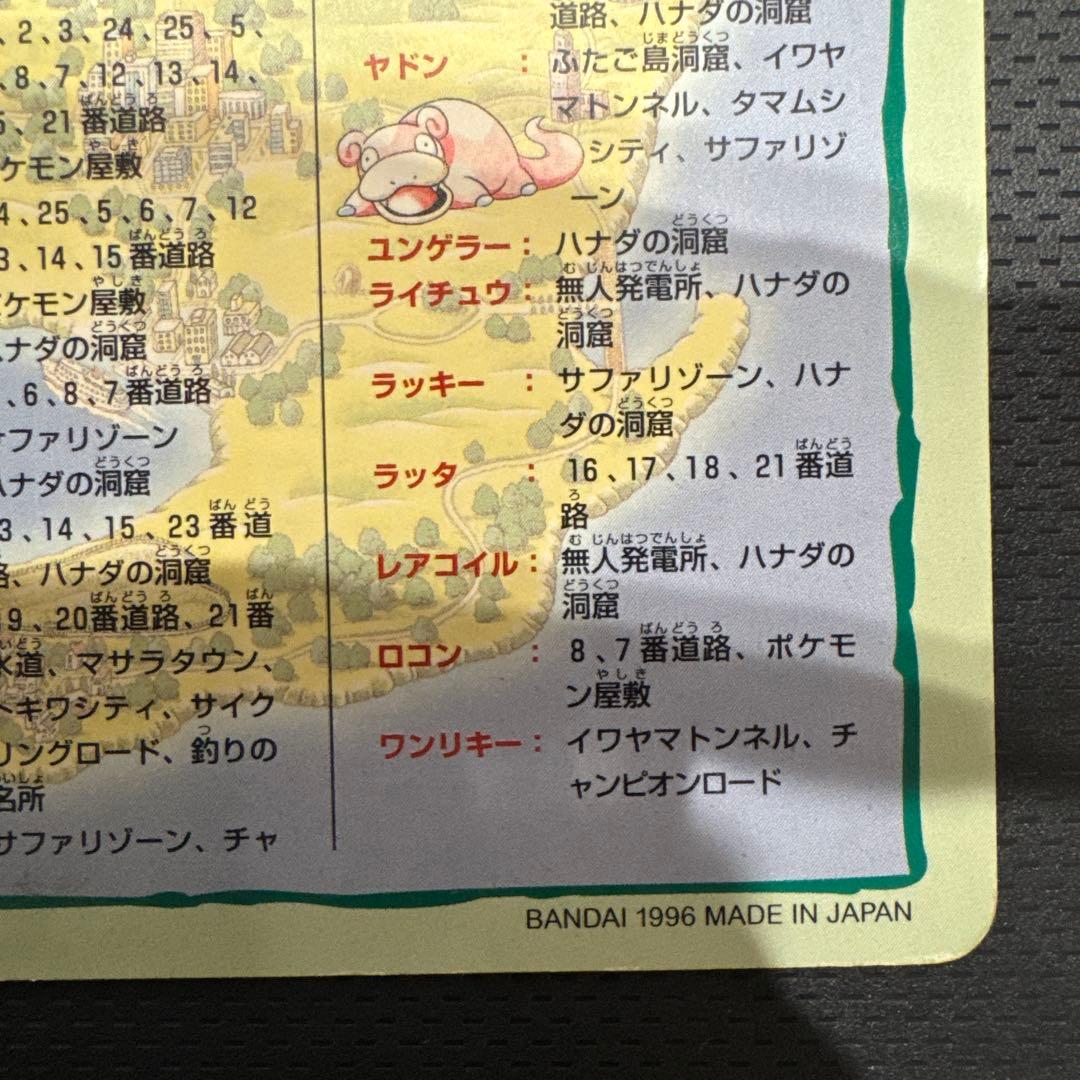 、2、3、24、25、5、
、8、7、12、13、14、
5、21番道路
ケモン屋敷
4、25、5、6、7、12
3、14、15番道路
ポケモン屋敷
ハナダの洞窟
、6、8、7番道路
サファリゾーン
ハナダの洞窟
3、14、15、23番道
路、ハナダの洞窟
9、20番道路、21番
水道、マサラタウン、
トキワシティ、サイク
リングロード、釣りの
名所
サファリゾーン、チャ
道路、ハナダの洞窟
ヤドン : ふたご島洞窟、イワヤ
マトンネル、タマムシ
シティ、サファリゾ
ーン
ユンゲラー : ハナダの洞窟
ライチュウ : 無人発電所、ハナダの
洞窟
ラッキー : サファリゾーン、ハナ
ダの洞窟
ラッタ : 16、17、18、21番道
路
レアコイル : 無人発電所、ハナダの
洞窟
ロコン : 8、7番道路、ポケモ
ン屋敷
ワンリキー : イワヤマトンネル、チ
ャンピオンロード
BANDAI 1996 MADE IN JAPAN